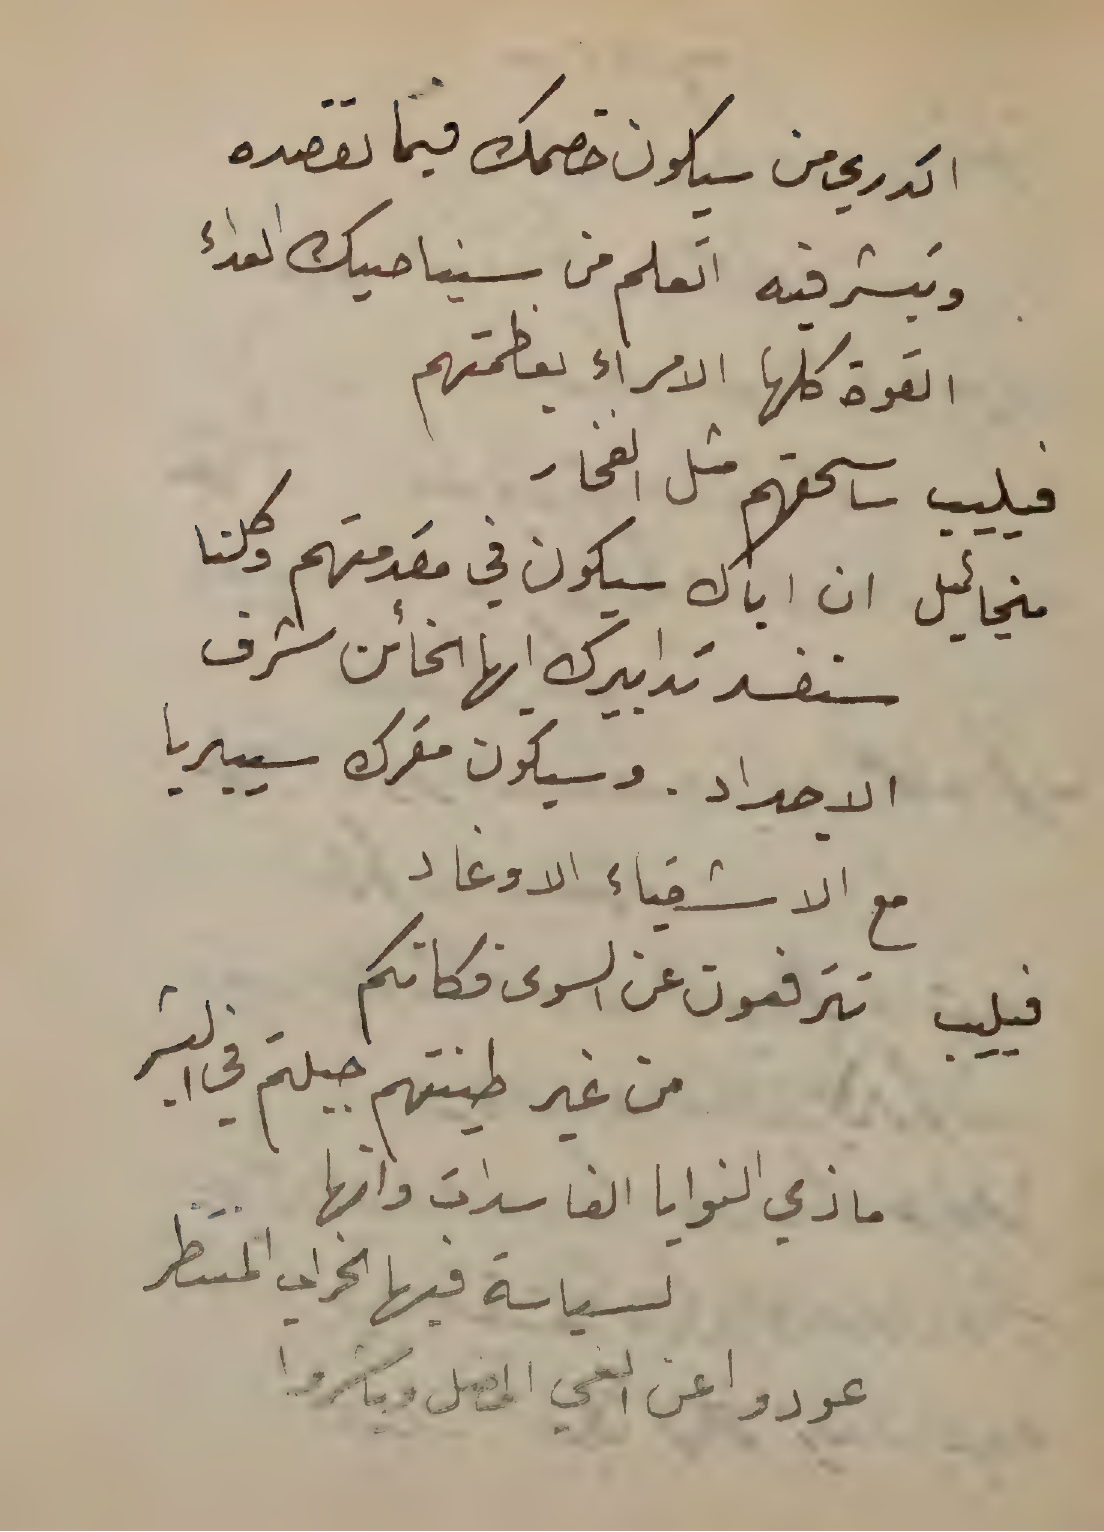 اتدري من سيكون خصمك فيما تقصده
وتبشر فيه اتعلم من سيناصبك العداء
القوة كلها الامراء بعظمتهم
فيليب ساسحقهم مثل الفخار
ميخائيل ان اباك سيكون في مقدمتهم وكلنا
سنفسد تدابيرك ايها الخائن شرف
الاجداد . وسيكون مقرك سيبيريا
مع الاشقياء الاوغاد
فيليب تترفعون عن السوى فكانكم
من غير طينتهم جبلتم في البشر
ماذي النوايا الفاسدات وانها
لسياسة فيها الخراب المنتظر
عودوا عن الغي المضل وبشروا